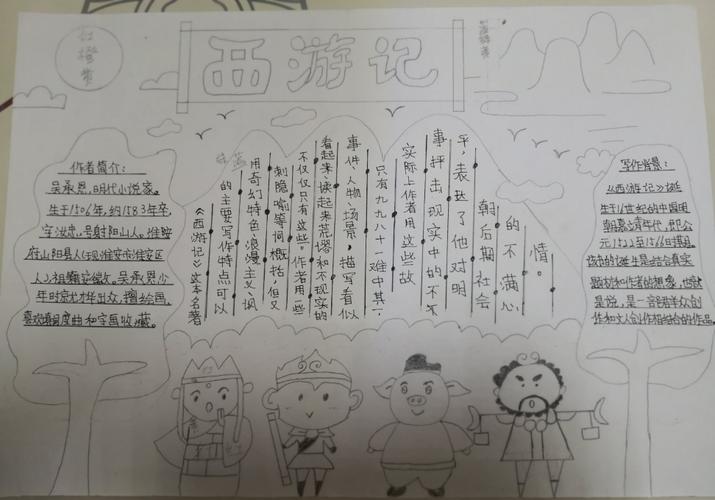 西游记
红
橙
黄
作者简介:
吴承恩,明代小说家。
生于1506年,约1583年卒,
字汝忠,号射阳山人。淮安
府山阳县人(现淮安市淮安区
人)。祖籍安徽。吴承恩少
年时才华出众、擅绘画,
喜欢填词度曲和字画收藏。
《西游记》这本名著
的主要写作特点可以
用奇幻特色、浪漫主义、讽
刺隐喻等词概括,但又
不仅仅只有这些。作者用一些
看起来、读起来荒谬和不现实的
事件、人物、场景,描写看似
只有九九八十一难中其
实际上作者用这些故
事抨击现实中的不
平,表达了他对明
朝后期社会
的不满心
情。
写作背景:
《西游记》诞
生于16世纪的中国明
朝嘉靖年代,即公
元1521至1566期间。
该书的诞生是结合真实
题材和作者的想象,也就
是说,是一部群众创
作和文人创作相结合的作品。